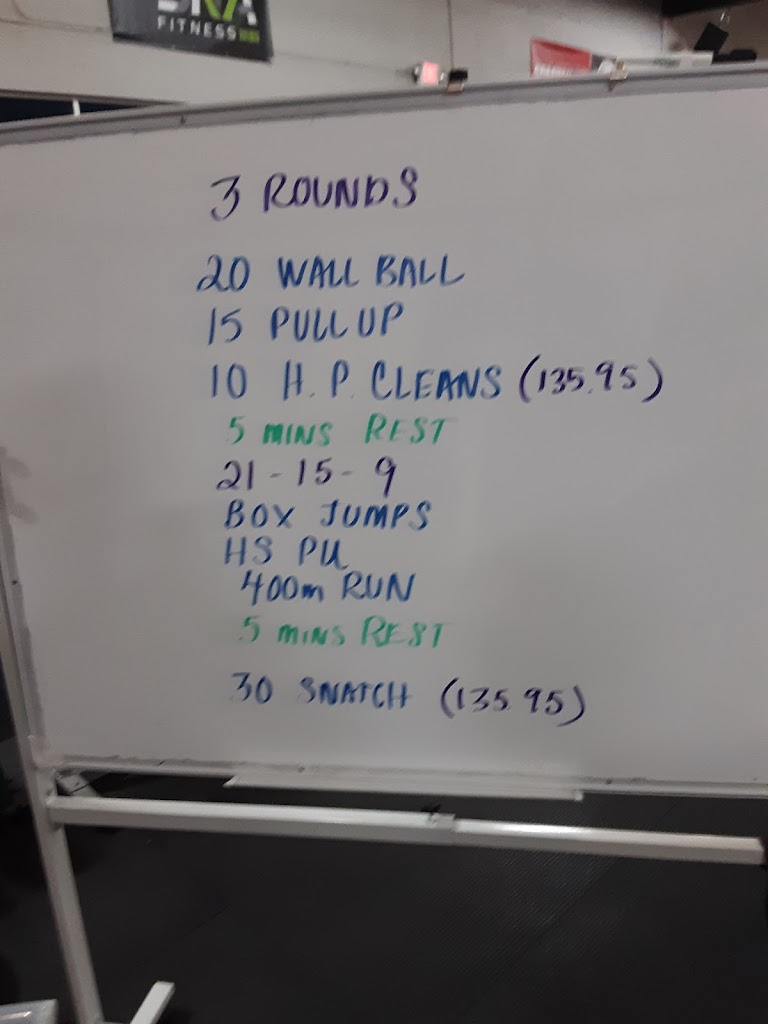 FITNESS
3 ROUNDS
20 WALL BALL
15 PULL UP
10 H. P. CLEANS (135.95)
5 MINS REST
21 - 15 - 9
BOX JUMPS
HS PU
400m RUN
5 MINS REST
30 SNATCH (135.95)